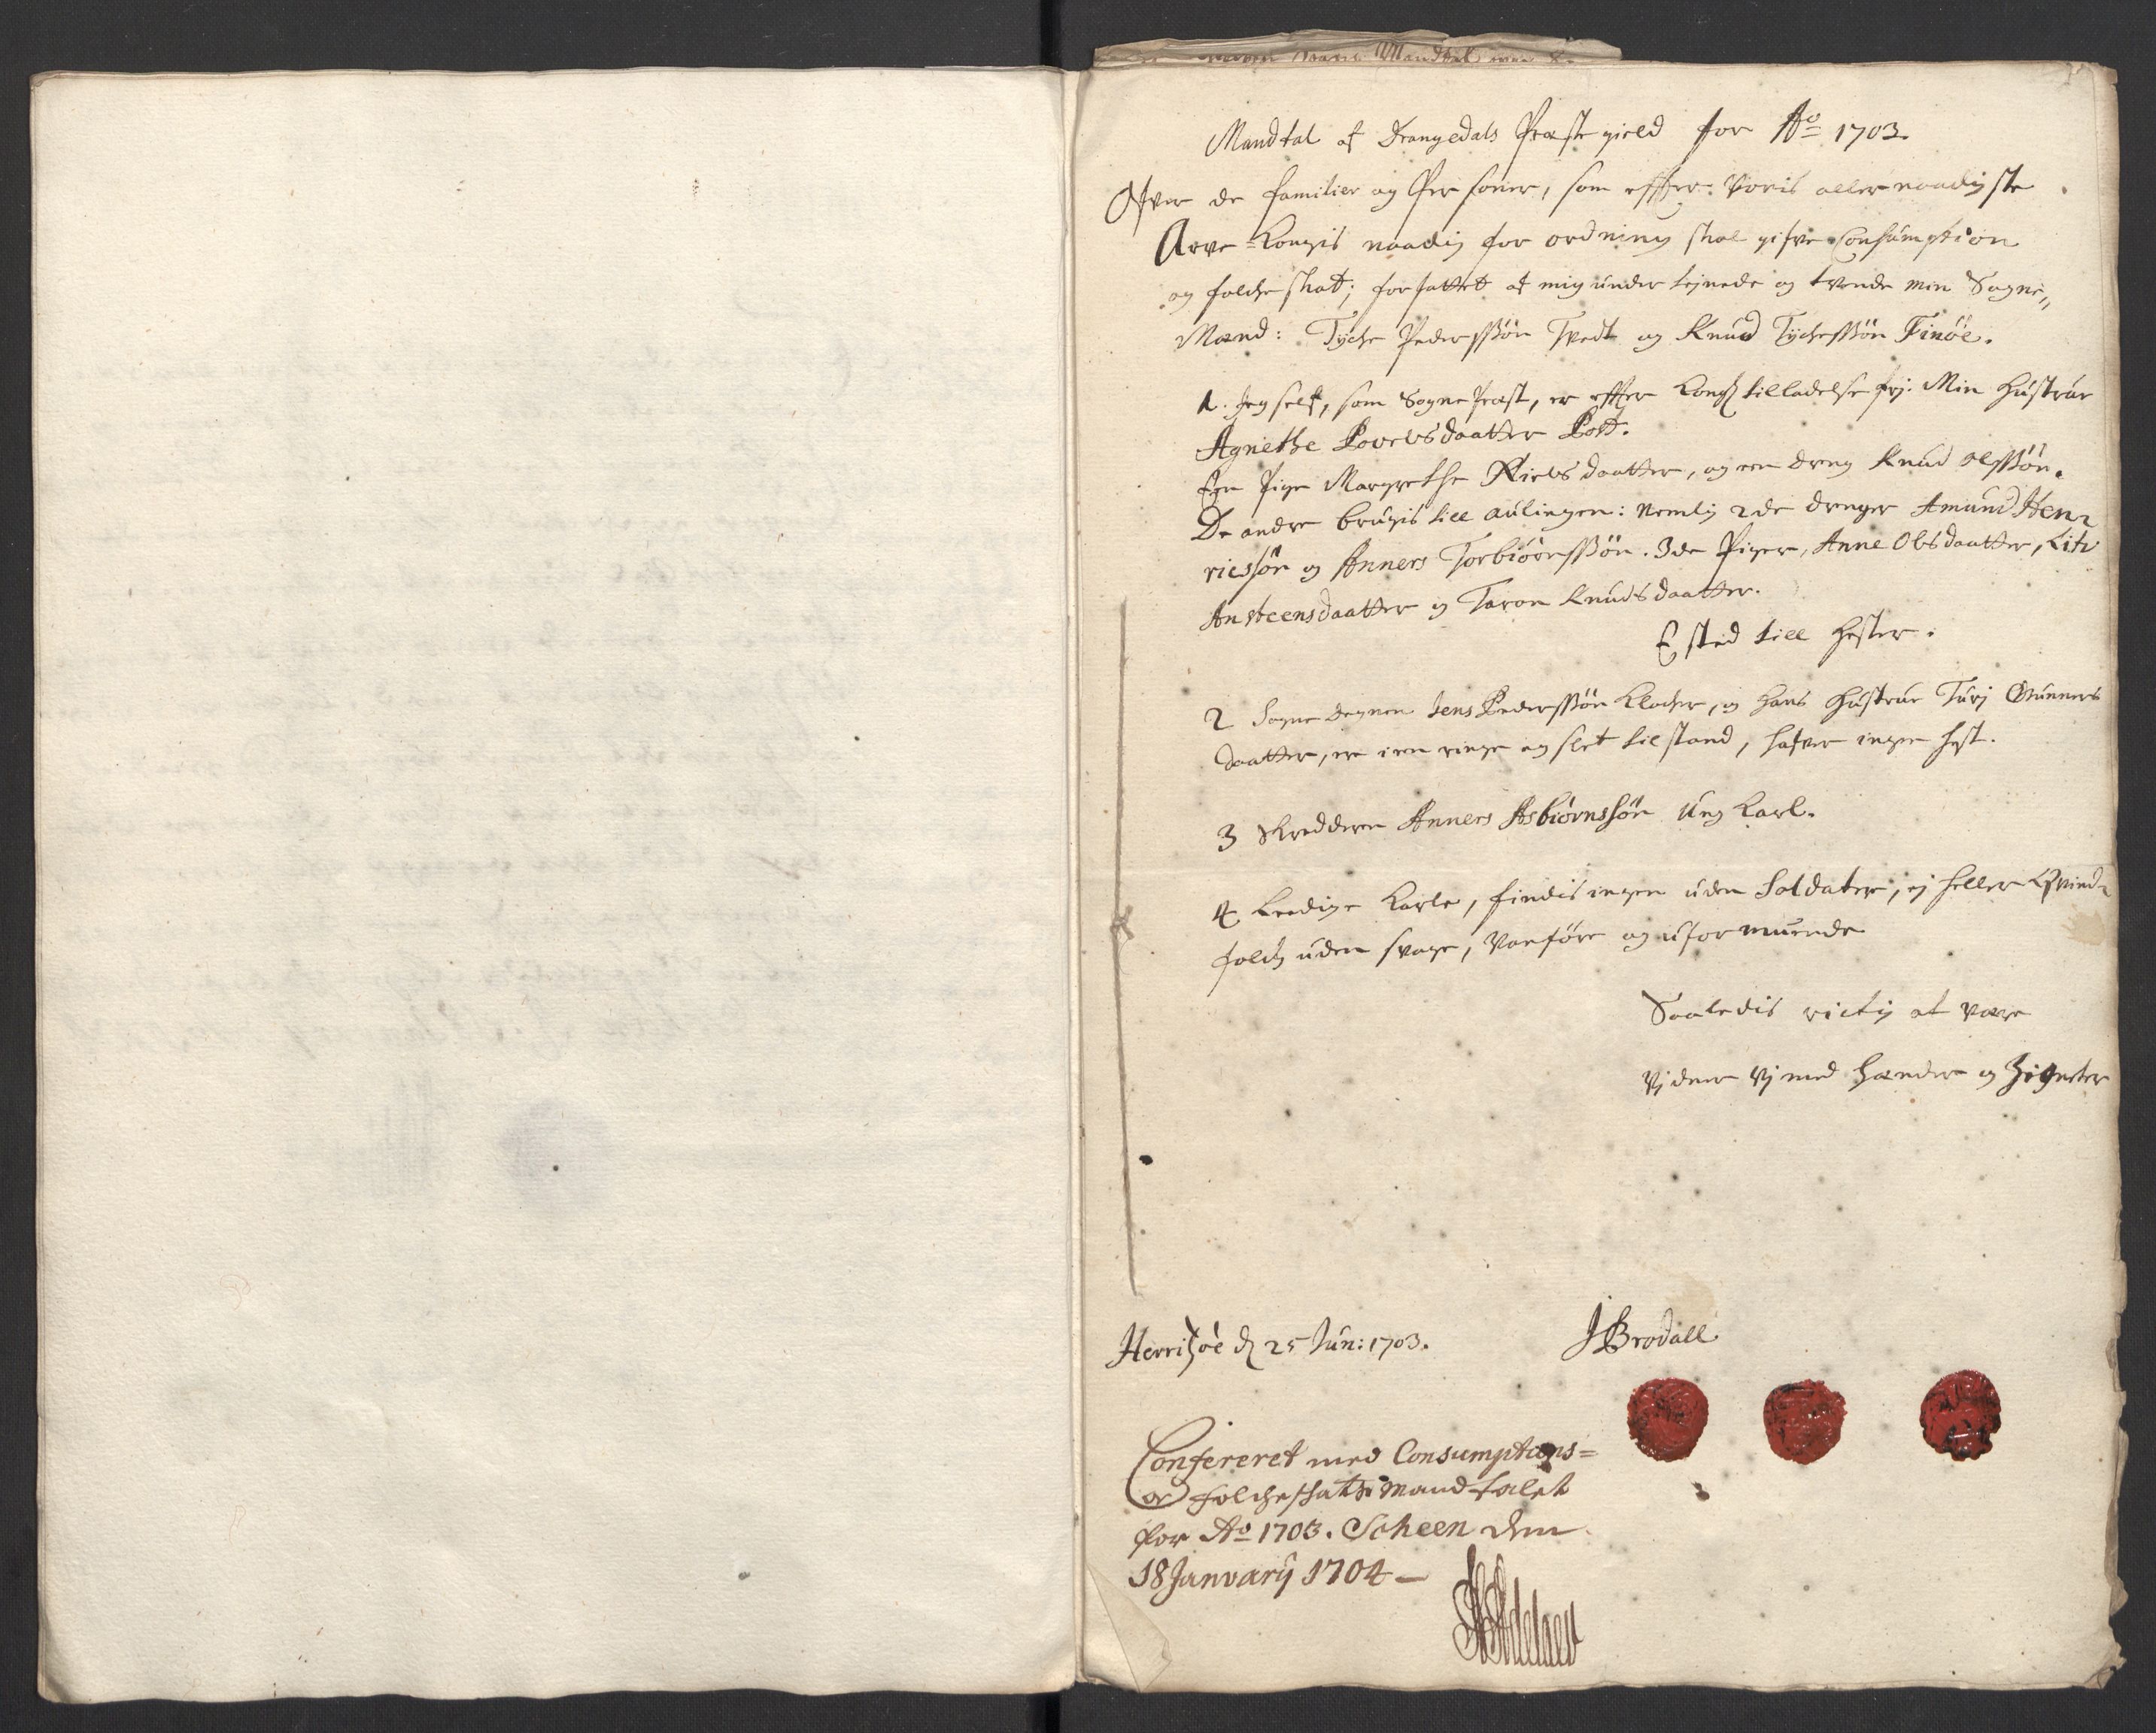 Mandtal af Drangedals Præstegield for Aº 1703.
Ofver de familier og Personer, som efter Voris allernaadigste
Arve-Kongis naadig forordning skal gifve Consumption
og folcheskat; forfattet af mig undertejnede og tvende min Sogne„
Mænd: Tyche Pederssøn Tvedt og Knud Tychessøn Finöe.
1. Jeg self, som Sogne Præst, er effter Kongl tilladelse frj. Min Hustrue
Agnethe Povelsdaatter Post.
Een Pige Margrethe Nielsdaatter, og een dreng Knud Olssøn.
De andre brugis till aulingen: Nemlig 2de drenger Amund Hen=
ricssøn og Anners Torbiörnssøn. 3de Piger, Anne Olsdaatter, Liv
Ansteensdaatter og Taron Knudsdaatter.
E sted till hester.
2 Sogne Degnen Jens Pederssøn Klocher, og hans Hustrue Turj Gunners
daatter, er i en ringe og slet tilstand, hafver ingen hest.
3 Skreddern Anners Asbiörnssøn Ung Karl.
4 Leedige Karle, findis ingen uden Soldater, ej heller Qvind=
folch uden svage, Vanføre og uformuende
Saaledis rictig at være
Vidner Vj med Hænder og Zigneter
d 25 Jun: 1703.
JBrodall
Confereret med Consumptions=
og folcheskats mandtalet
for Aº 1703. Scheen den
18 Januarij 1704 —